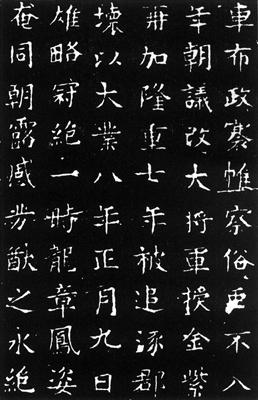 車布政褰帷察俗更不八
年朝議改大將軍授金紫
冊加隆重七年被追涿郡
壞以大業八年正月九日
雄略冠絕一時龍章鳳姿
奄同朝露感芳猷之永絕